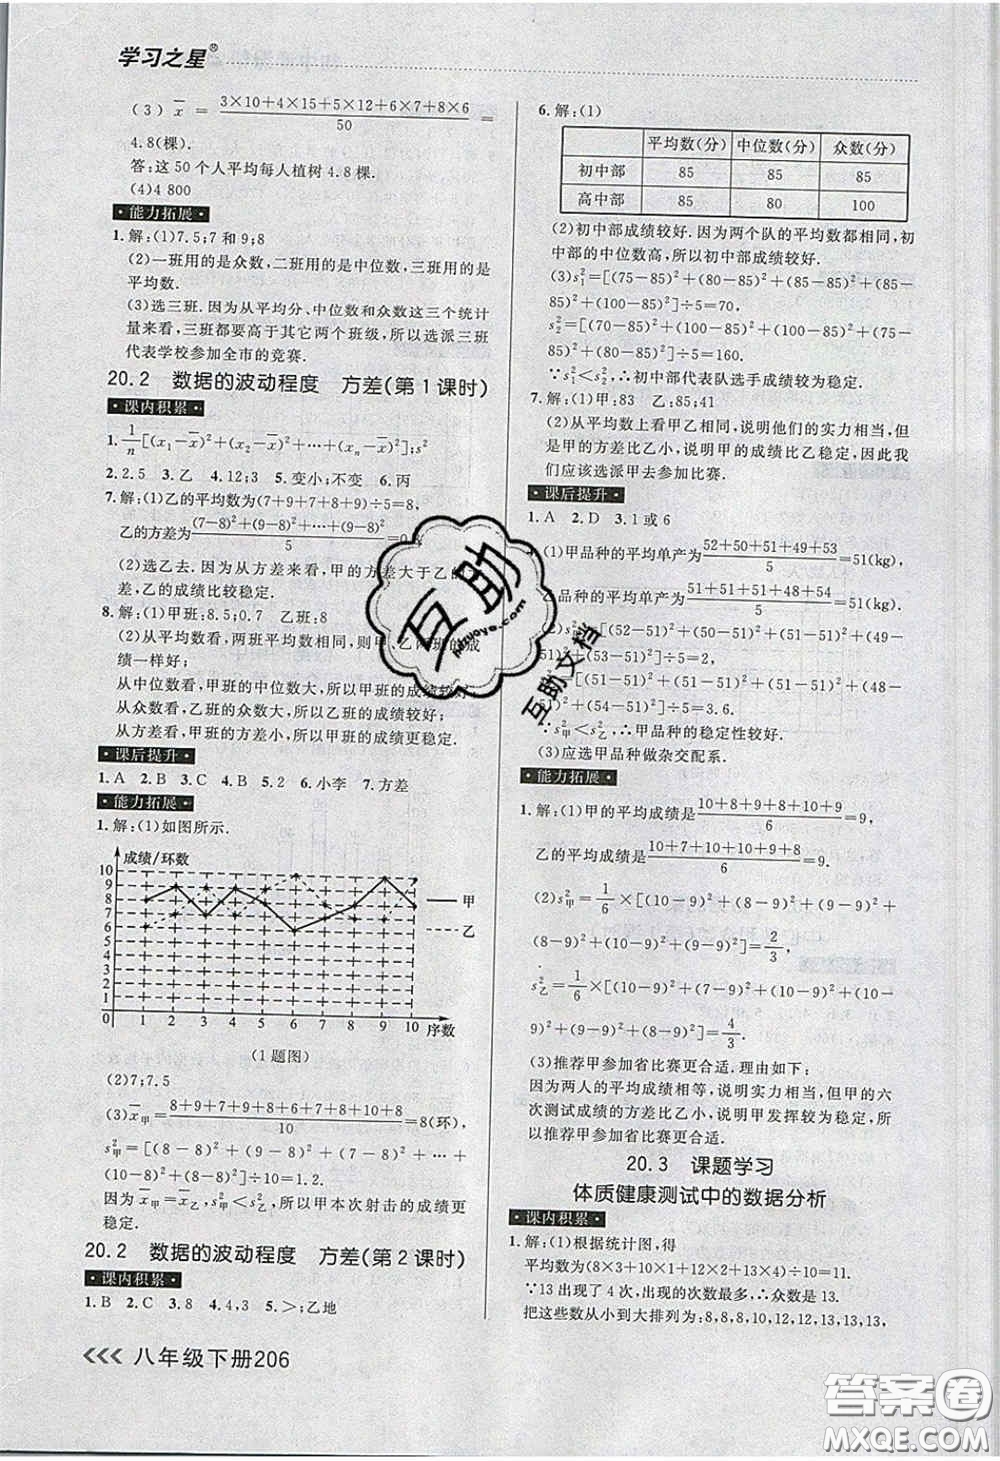 学习之星®
(3) x̄ = (3×10+4×15+5×12+6×7+8×6)/50 =
4.8(棵).
答:这 50 个人平均每人植树 4.8 棵.
(4)4 800
·能力拓展·
1.解:(1)7.5;7 和 9;8
(2)一班用的是众数,二班用的是中位数,三班用的是
平均数.
(3)选三班. 因为从平均分、中位数和众数这三个统计
量来看,三班都要高于其它两个班级,所以选派三班
代表学校参加全市的竞赛.
20.2 数据的波动程度 方差(第1课时)
·课内积累·
1. 1/n[(x₁−x̄)²+(x₂−x̄)²+⋯+(xₙ−x̄)²];s²
2.2.5 3.乙 4.12;3 5.变小;不变 6.丙
7.解:(1)乙的平均数为(7+9+7+8+9)÷5=8,
乙的方差为 ((7−8)²+(9−8)²+⋯+(9−8)²)/5=0.8
(2)选乙去. 因从方差看,甲的方差大于乙的方
差,乙的成绩比较稳定.
8.解:(1)甲班:8.5;0.7 乙班:8
(2)从平均数看,两班平均数相同,则甲、乙两班的成
绩一样好;
从中位数看,甲班的中位数大,所以甲班的成绩较好;
从众数看,乙班的众数大,所以乙班的成绩较好;
从方差看,甲班的方差小,所以甲班的成绩更稳定.
·课后提升·
1.A 2.B 3.C 4.B 5.2 6.小李 7.方差
·能力拓展·
1.解:(1)如图所示.
成绩/环数
10
9
8
7
6
5
4
3
2
1
0
甲
乙
1 2 3 4 5 6 7 8 9 10 序数
(1题图)
(2)7;7.5
(3)x̄甲=(8+9+7+9+8+6+7+8+10+8)/10=8(环),
s²甲=[(8−8)²+(9−8)²+⋯+(8−8)²]÷10=1.2.
因为 x̄甲=x̄乙,s²甲<s²乙,所以甲本次射击的成绩更
稳定.
20.2 数据的波动程度 方差(第2课时)
·课内积累·
1.B 2.C 3.8 4.4,3 5.>;乙地
<<< 八年级下册206
6.解:(1)
平均数(分) 中位数(分) 众数(分)
初中部 85 85 85
高中部 85 80 100
(2)初中部成绩较好. 因为两个队的平均数都相同,初中
部的中位数高,所以初中部成绩较好.
(3)s₁²=[(75−85)²+(80−85)²+(85−85)²+
(85−85)²+(100−85)²]÷5=70.
s₂²=[(70−85)²+(100−85)²+(100−85)²+
(75−85)²+(80−85)²]÷5=160.
∵s₁²<s₂²,∴初中部代表队选手成绩较为稳定.
7.解:(1)甲:83 乙:85;41
(2)从平均数上看甲乙相同,说明他们的实力相当,
但是甲的方差比乙小,说明甲的成绩比乙稳定,因此我
们应该选派甲去参加比赛.
·课后提升·
1.A 2.D 3.1 或 6
(1)甲品种的平均单产为(52+50+51+49+53)/5=51(kg).
乙品种的平均单产为(51+51+51+48+54)/5=51(kg).
[(52−51)²+(50−51)²+(51−51)²+
(49−51)²+(53−51)²]÷5=2,
(51−51)²+(51−51)²+(48−
51)²+(54−51)²]÷5=3.6.
∵s²甲<s²乙,∴甲品种的稳定性较好.
(3)应选甲品种做杂交配系.
·能力拓展·
1.解:(1)甲的平均成绩是(10+8+9+8+10+9)/6=9,
乙的平均成绩是(10+7+10+10+9+8)/6=9.
(2)s²甲=1/6×[(10−9)²+(8−9)²+(9−9)²+
(8−9)²+(10−9)²+(9−9)²]=2/3,
s²乙=1/6×[(10−9)²+(7−9)²+(10−9)²+(10−
9)²+(9−9)²+(8−9)²]=4/3.
(3)推荐甲参加省比赛更合适. 理由如下:
因为两人的平均成绩相等,说明实力相当,但甲的六
次测试成绩的方差比乙小,说明甲发挥较为稳定,所
以推荐甲参加省比赛更合适.
20.3 课题学习
体质健康测试中的数据分析
·课内积累·
1.解:(1)根据统计图,得
平均数为(8×3+10×1+12×2+13×4)÷10=11.
∵13 出现了 4 次,出现的次数最多,∴众数是 13.
把这些数从小到大排列为:8,8,8,10,12,12,13,13,13,
互助
hzzuoye.com
互助文档
答案圈
MXQE.COM